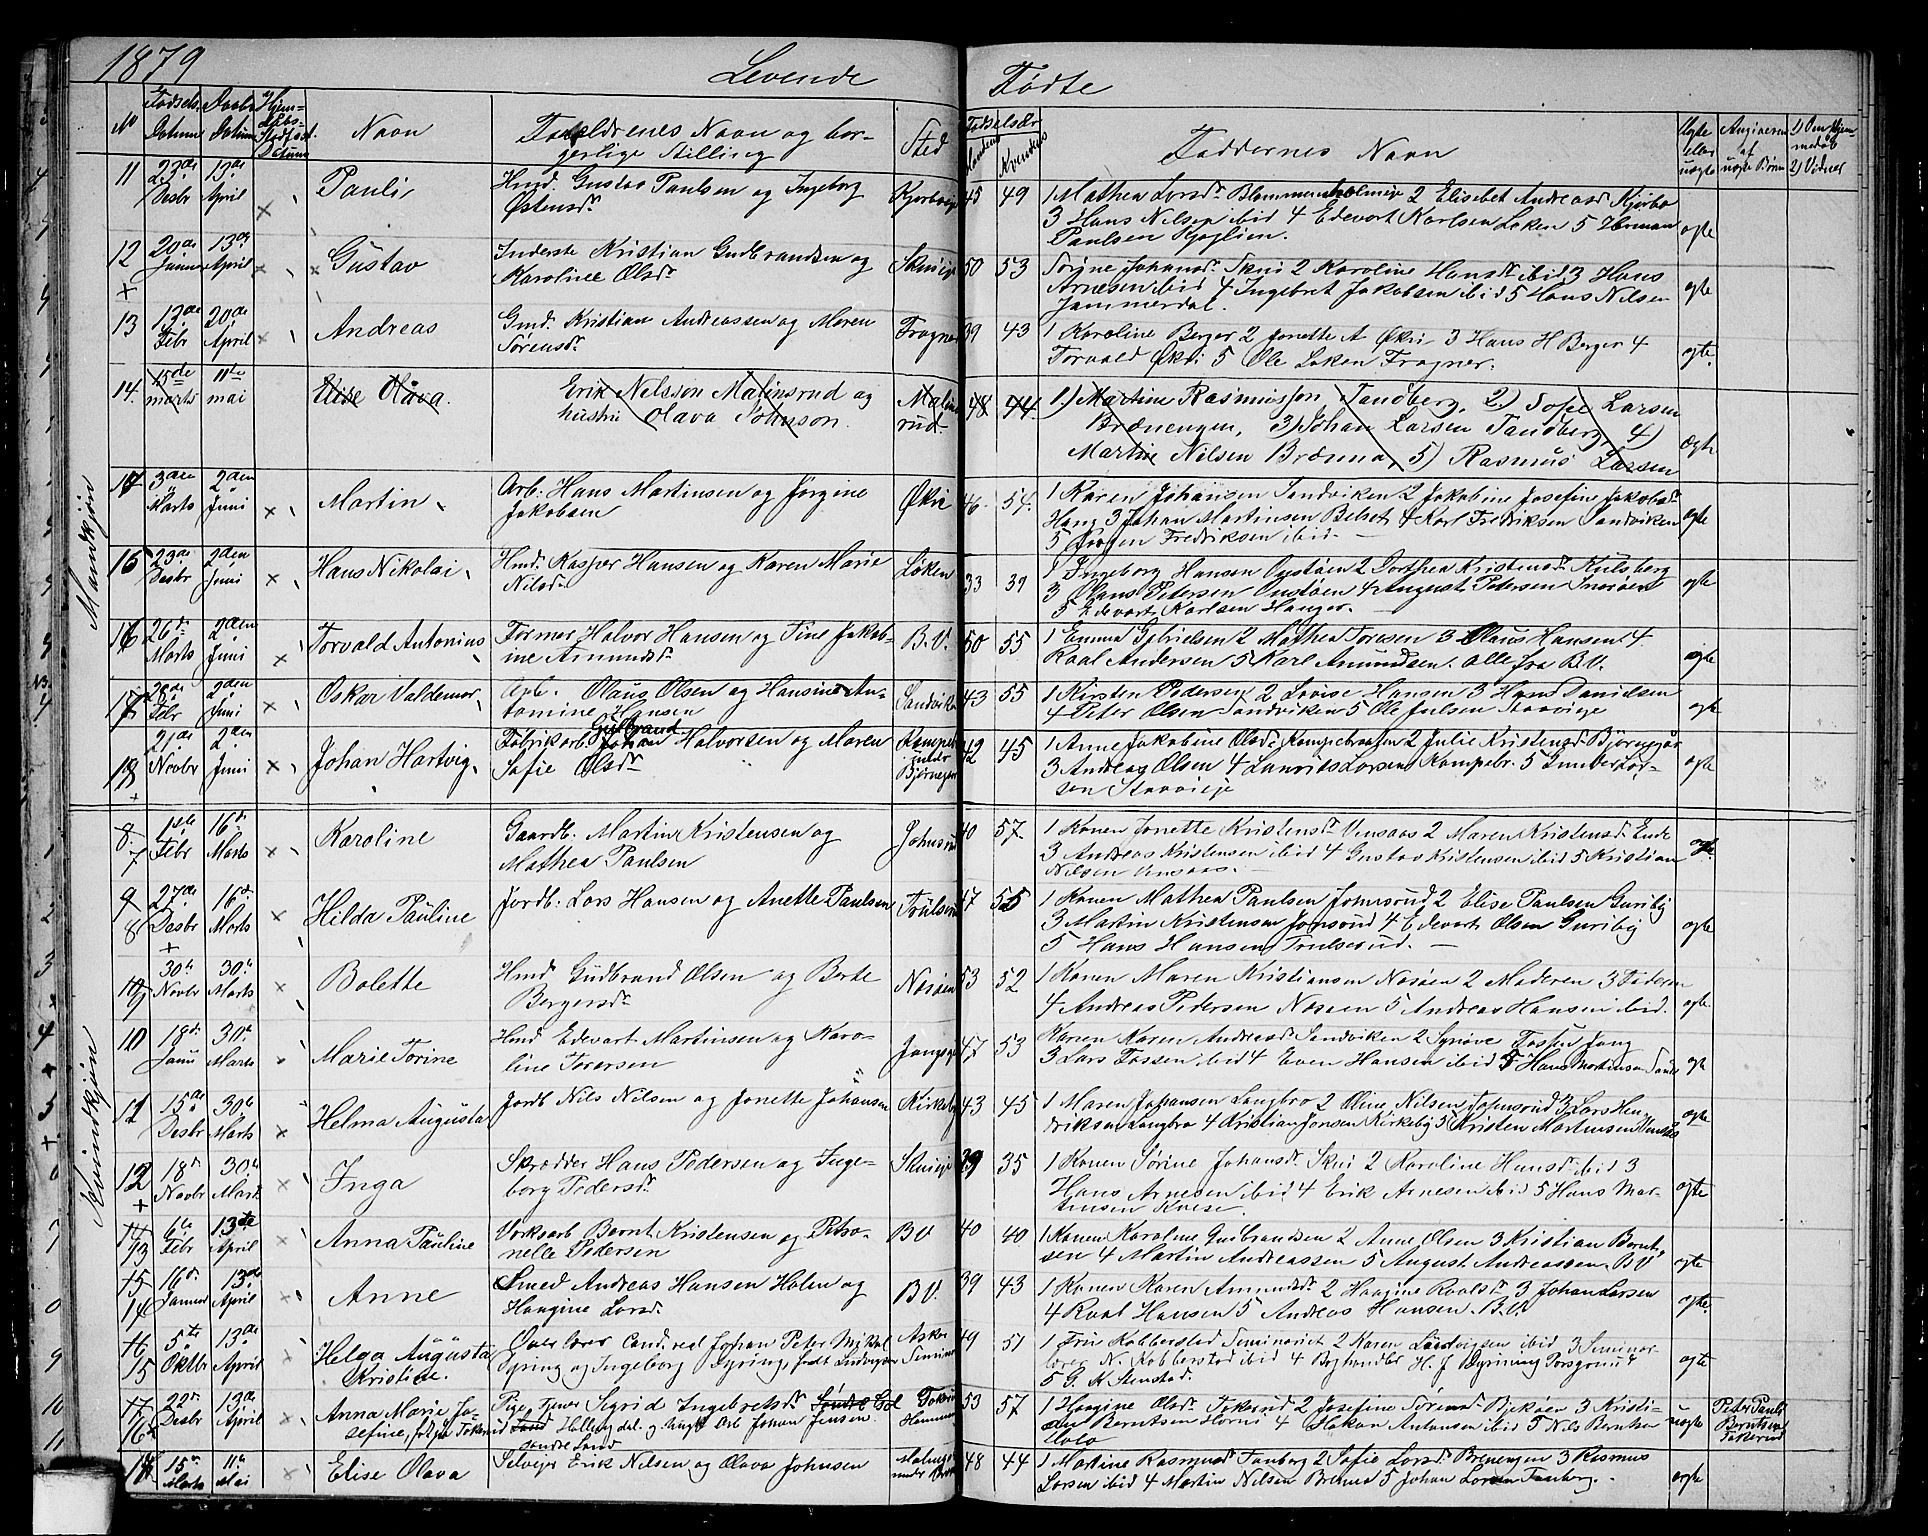 1879
Levende Fødte
No
Fødsels Datum
Daabs Datum
Hjemmedøbs Stadfæst. Datum
Navn
Forældrenes Navn og borgerlige Stilling
Sted
Fødselsår
Mandens
Kvindens
Faddernes Navn
Ægte eller uægte
Angiveren af uægte Børn
1) Om Hjemmedøb
2) Vidner
Mandkjøn
11 23de Desbr 13de April × Pauli
Hmd. Gustav Paulsen og Ingeborg
Østensdr
45 49
1 Mathea Larsdr Blommenholmeie 2 Elisebet Andreasdr Kjørbo
3 Hans Nilsen ibid 4 Edevart Karlsen Løken 5 Herman
Paulsen
ægte
12 20de Januar 13de April × Gustav
Inderste Kristian Gudbrandsen og
Karoline Olsdr
Skuieie 50 53
Sørine Johansdr Skui 2 Karoline Hansdr ibid 3 Hans
Arnesen ibid 4 Ingebret Jakobsen ibid 5 Hans Nilsen
Jammerdal.
ægte
13 13de Febr 20de April × Andreas
Gmd. Kristian Andreassen og Maren
Sørensdr
Frogner 39 43
1 Karoline Berger 2 Jonette A Økri 3 Hans H Berger 4
Torvald Økri 5 Ole Løken Frogner.
ægte.
14. 15de marts 11te mai Elise Olava.
Erik Nelsson Malinsrud og
hustru Olava Johnson.
Malinsrud. 48 44.
1) Martine Rasmusson Tandberg, 2) Sofie Larsen
Brænengen, 3) Johan Larsen Tandberg, 4)
Martin Nilsen Brænna, 5) Rasmus Larsen
Ægte
3den Marts 2den Juni × Martin
Arb: Hans Martinsen og Jørgine
Jakobsen
Økri 46 54.
1 Karen Johansen Sandviken 2 Jakobine Josefine Jakobsdr
Haug 3 Johan Martinsen Belset 4 Karl Fredriksen Sandviken
5 Jørgen Fredriksen ibid.
ægte
15 23de Desbr 2den Juni × Hans Nikolai
Hmd. Kasper Hansen og Karen Marie
Nilsdr
Løken 33 39
1 Ingeborg Hansen Onstøen 2 Dorthea Kristensdr Kulsberg
3 Olaus Petersen Onstøen 4 August Petersen
5 Edevart Karlsen Hauger.
ægte
16 26de Marts 2den Juni × Torvald Antonius
Former Halvor Hansen og Tine Jakobine
Amundsdr
B.V. 50 55
1 Emma Gabrielsen 2 Mathea Toresen 3 Olaus Hansen 4
Roal Andersen 5 Karl Amundsen. Alle fra B.V.
ægte
17 28de Febr 2den Juni × Oskar Valdemar
Arb. Olaus Olsen og Hansine Antomine
Hansen
Sandviken 43 55
1 Kirsten Pedersen 2 Lovise Hansen 3 Hans Danielsen
4 Peter Olsen Sandviken 5 Ole Julsen Stavøieie
ægte
18 21de Novbr 2den Juni × Johan Hartvig
Fabrikarb. Gulbrand Johan Halvorsen og Maren
Sofie Olsdr
Kampebr. under Bjørnegaard 42 45
1 Anne Jakobine Olsdr Kampebraaten 2 Julie Kristensdr Bjørnegår
3 Andreas Olsen 4 Laurits Larsen Kampebr. 5 Gunder Larsen
Stavøieie
ægte
Kvindkjøn
8 7 1ste Febr 16de Marts × Karoline
Gaardb. Martin Kristensen og
Mathea Paulsen
Johnsrud 40 57
1 Konen Jonette Kristensdr Vensaas 2 Maren Kristensdr Ende
3 Andreas Kristensen ibid 4 Gustav Kristensen ibid 5 Kristian
Nilsen Vensaas.
ægte.
9 8 27de Desbr 16de Marts × Hilda Pauline
Jordb: Lars Hansen og Anette Paulsen
Trulsrud 47 55
1 Konen Mathea Paulsen Johnsrud 2 Elise Paulsen Guriby
3 Martin Kristensen Jonsrud 4 Edevart Olsen Guriby
5 Hans Hansen Trulserud.
ægte
10 9 30te Novbr 30te Marts × Bolette
Hmd Gudbrand Olsen og Berte
Bergersdr
Nosøen 53 52
1 Konen Maren Kristiansen Nosøen 2 Moderen 3 Faderen
4 Andreas Pedersen Nosøen 5 Andreas Hansen ibid.
ægte
10 18de Janu 30te Marts Marie Torine
Hmd Edevart Martinsen og Karoline
Torersen
Jongseie 47 53
Konen Karen Andreasdr Sandviken 2 Synøve Fossen Jong
3 Lars Fossen ibid 4 Even Hansen ibid 5 Hans Martinsen
ægte
11 15de Desbr 30te Marts × Helma Augusta
Jordb Nils Nilsen og Jonette Johansen
Kirkeby 43 45
1 Maren Johansen Langbro 2 Oline Nilsen Johnsrud 3 Lars Hendriksen
Langbro 4 Kristian Jonsen Kirkeby 5 Kristen Martinsen
ægte
12 18de Novbr 30te Marts × Inga
Skrædder Hans Pedersen og Ingeborg
Pedersdr
Skuieie 39 35
1 Konen Sørine Johansdr Skui 2 Karoline Hansdr ibid 3
Hans Arnesen ibid 4 Erik Arnesen ibid 5 Hans Martinsen
ægte
14 13 6te Febr 13de April × Anna Pauline
Verksarb Bernt Kristensen og Petronelle
Pedersen
BV 40 40
1 Konen Karoline Gudbrandsen 2 Anne Olsen 3 Kristian Berntsen
4 Martin Andreassen 5 August Andreassen. BV
ægte
15 14 16de Januar 13de April × Anne
Smed Andreas Hansen Holen og
Haagine Larsdr
BV. 39 43
1 Konen Karen Amundsdr 2 Haagine Roalsdr 3 Johan Larsen
4 Roal Hansen 5 Andreas Hansen. B.V.
ægte.
16 15 5te Oktbr 13de April × Helga Augusta
Kristine.
Overlærer Cand. real Johan Peter Mikkel
Dyring og Ingeborg Dyring, født Ludvigsen
Asker Seminar 49 51
1 Fru Kobberstad Seminariet 2 Karen Ludvigsen ibid 3 Seminarlærer
N. Kobberstad ibid 4 Boghandler H. J Dyring Porsgrund
5 G. K Stenstad.
ægte
17 16 22de Desbr 13de April × Anna Marie Josefine,
født på Tokerud
Pige Tjener Sigrid Ingebretsdr Søndre Gol
Hallingdal. og Ungk Arb Johan Jensen
søndre Land
Tokerud 53 57
1 Haagine Olsdr Tokerud 2 Josefine Sørensdr Bjekåen 3 Kristian
Berntsen Horni 4 Hakon Antonsen ibid 5 Nils Berntsen
uægte
Peter Pauli Berntsen Tokerud
17 15de Marts 11te Mai × Elise Olava
Selveier Erik Nilsen og Olava Johnsen
48 44
1 Martine Rasmusdr Tanberg 2 Sofie Larsdr Brenengen 3 Rasmus
Larsen ibid 4 Martin Nilsen Brenna 5 Johan Larsen Tanberg.
ægte